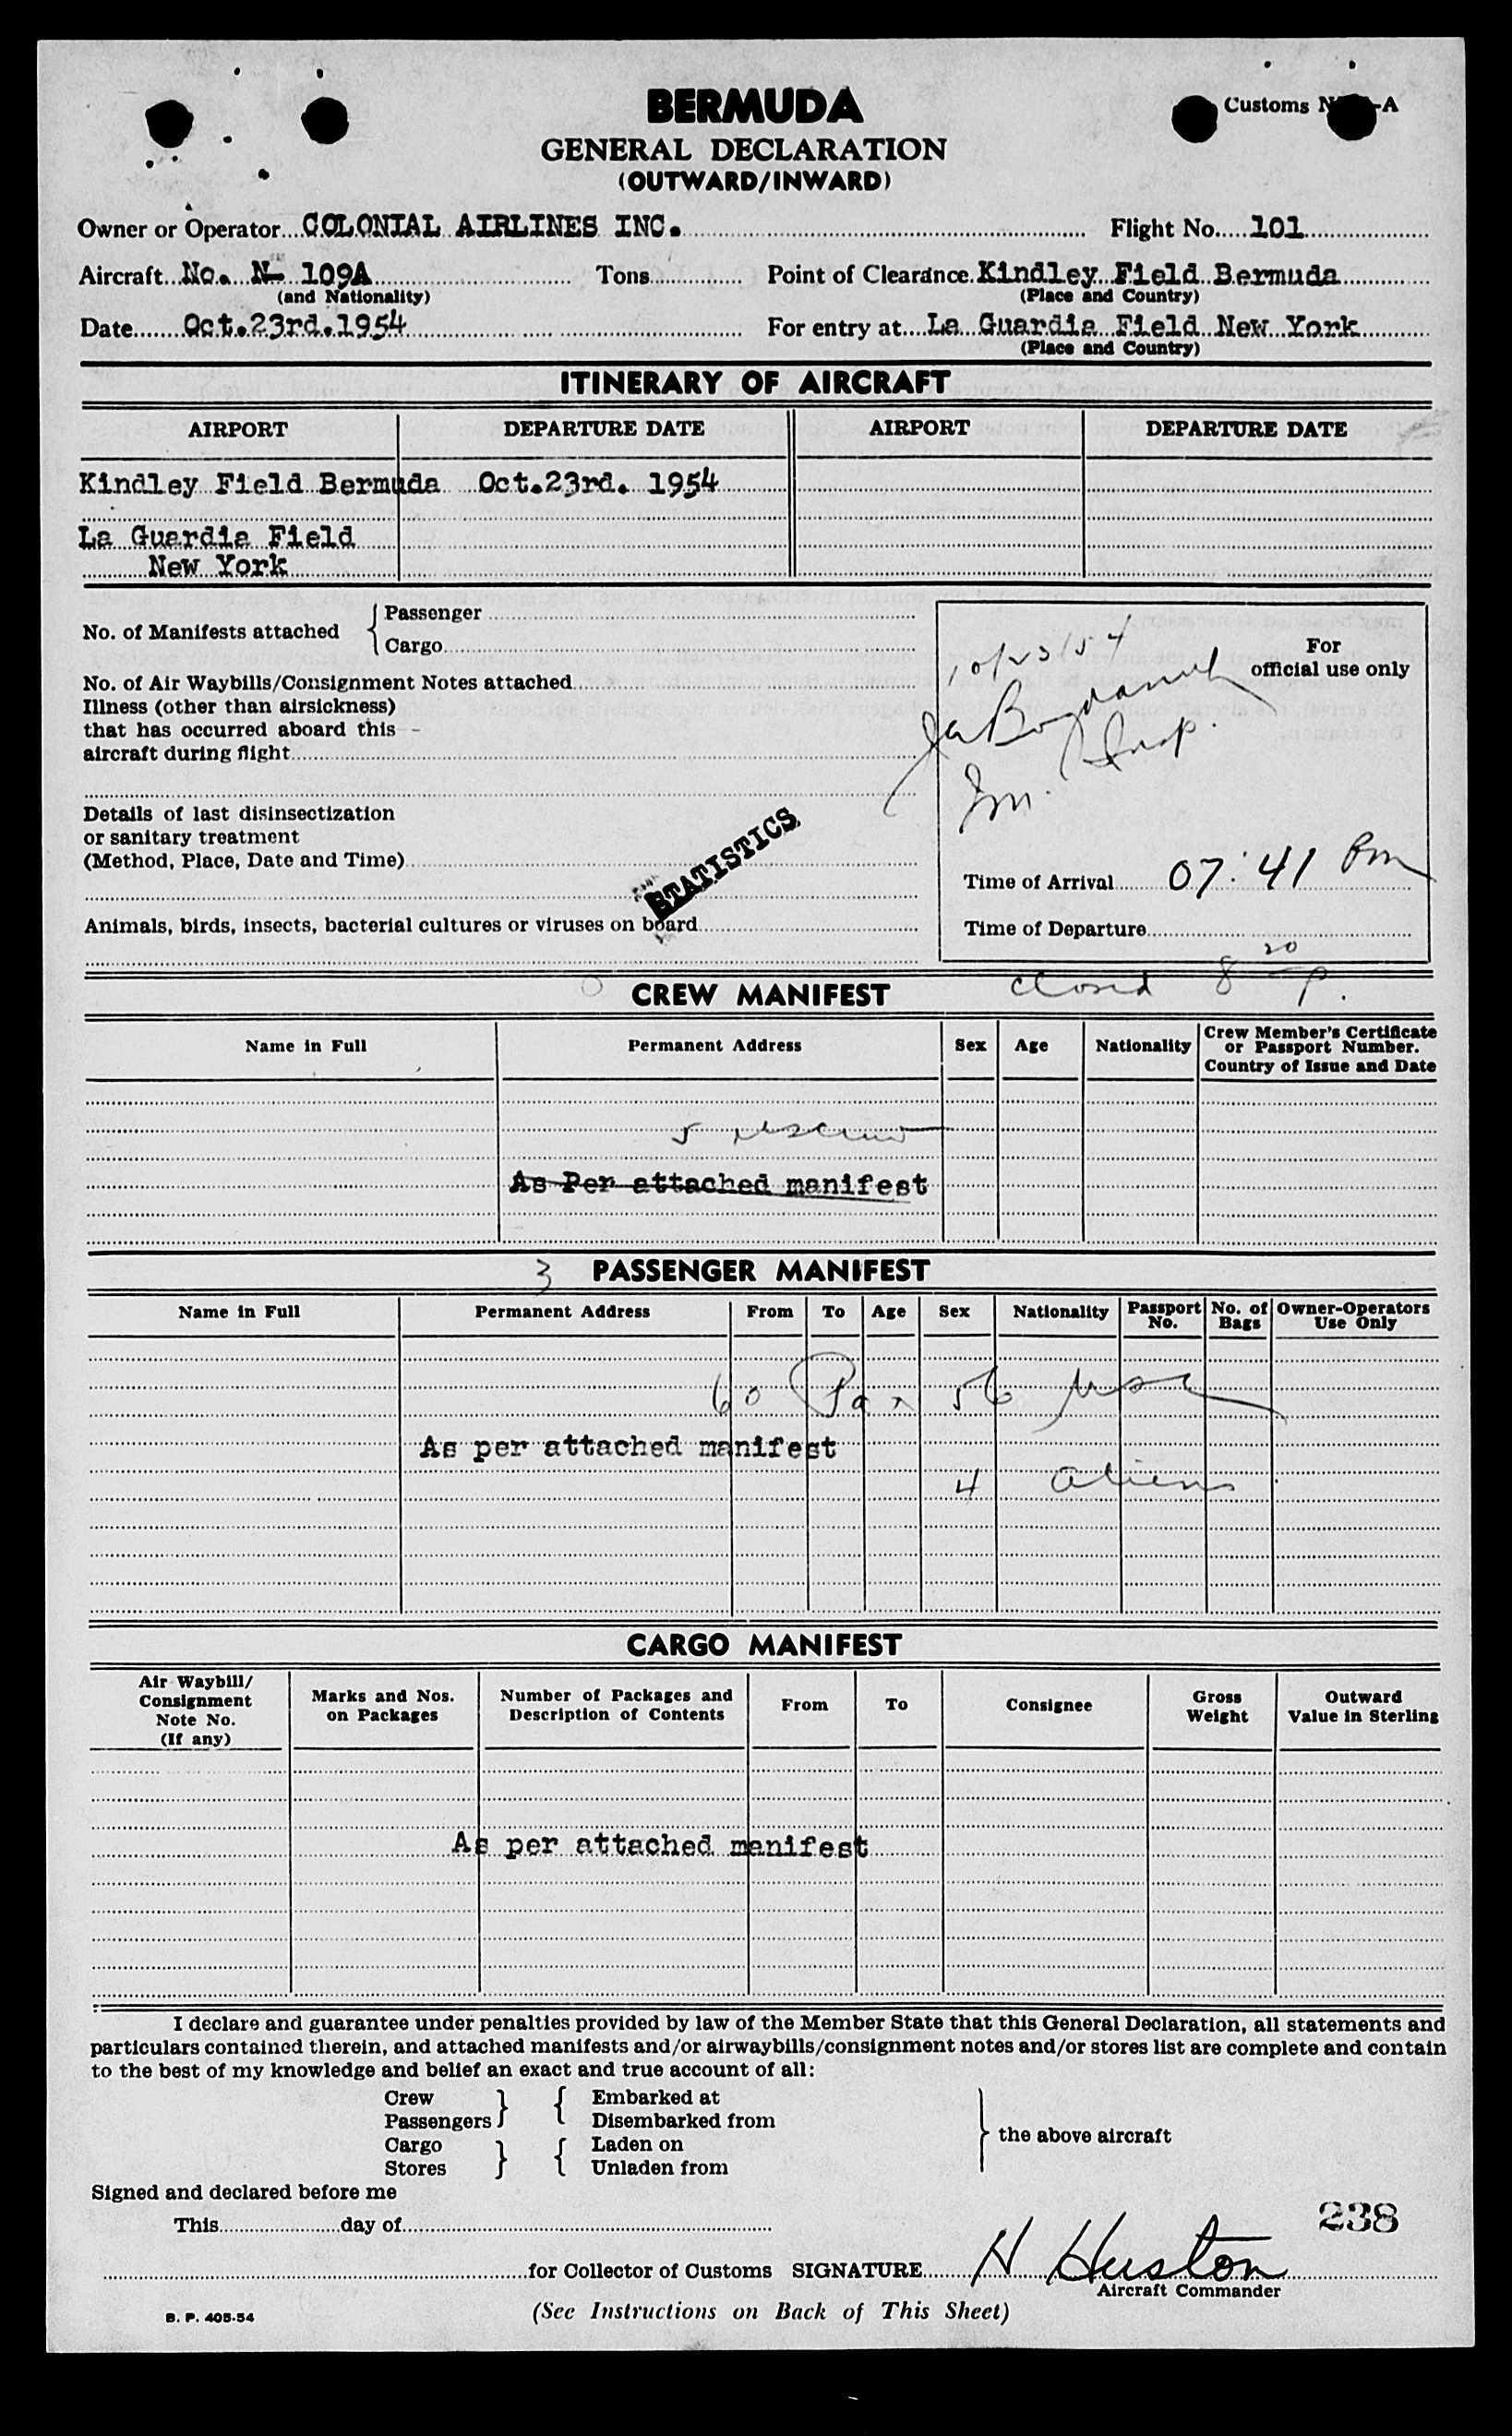 BERMUDA
Customs N -A
GENERAL DECLARATION
(OUTWARD/INWARD)
Owner or Operator COLONIAL AIRLINES INC. Flight No. 101
Aircraft No. N- 109A Tons Point of Clearance Kindley Field Bermuda
(and Nationality) (Place and Country)
Date Oct.23rd.1954 For entry at La Guardia Field New York
(Place and Country)
ITINERARY OF AIRCRAFT
AIRPORT DEPARTURE DATE AIRPORT DEPARTURE DATE
Kindley Field Bermuda Oct.23rd. 1954
La Guardia Field
New York
No. of Manifests attached
Passenger
Cargo
No. of Air Waybills/Consignment Notes attached
Illness (other than airsickness)
that has occurred aboard this
aircraft during flight
Details of last disinsectization
or sanitary treatment
(Method, Place, Date and Time)
STATISTICS
Animals, birds, insects, bacterial cultures or viruses on board
10/23/54
For
official use only
Im. Insp.
Time of Arrival 07:41 Pm
Time of Departure
closed 8 20 P.
CREW MANIFEST
Name in Full Permanent Address Sex Age Nationality Crew Member's Certificate
or Passport Number.
Country of Issue and Date
5
As Per attached manifest
3 PASSENGER MANIFEST
Name in Full Permanent Address From To Age Sex Nationality Passport No. No. of Bags Owner-Operators Use Only
60 Pax 56 usc
As per attached manifest
4 aliens
CARGO MANIFEST
Air Waybill/
Consignment
Note No.
(If any)
Marks and Nos.
on Packages
Number of Packages and
Description of Contents
From To Consignee
Gross
Weight
Outward
Value in Sterling
As per attached manifest
I declare and guarantee under penalties provided by law of the Member State that this General Declaration, all statements and
particulars contained therein, and attached manifests and/or airwaybills/consignment notes and/or stores list are complete and contain
to the best of my knowledge and belief an exact and true account of all:
Crew Embarked at
Passengers Disembarked from
Cargo Laden on
Stores Unladen from
the above aircraft
Signed and declared before me
This day of
238
for Collector of Customs SIGNATURE H Huston
Aircraft Commander
B. P. 405-54
(See Instructions on Back of This Sheet)